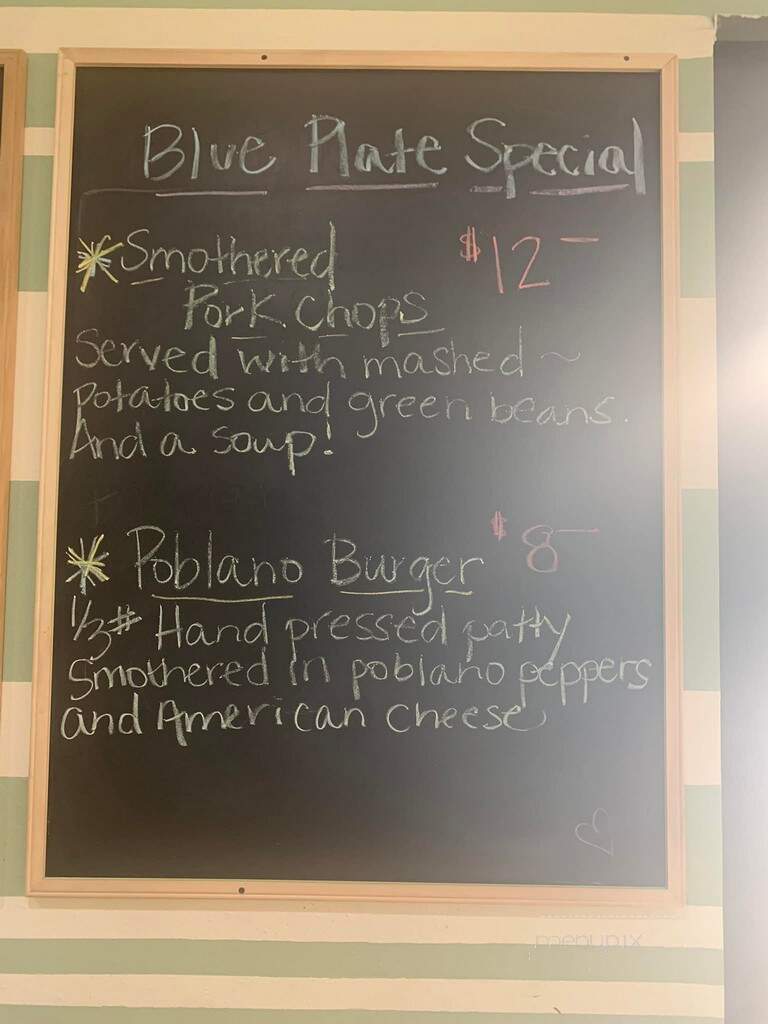 Blue Plate Special
Smothered $12-
Pork Chops
Served with mashed ~
potatoes and green beans.
And a soup!
Poblano Burger $8-
1/3# Hand pressed patty
smothered in poblano peppers
and American cheese
menupix